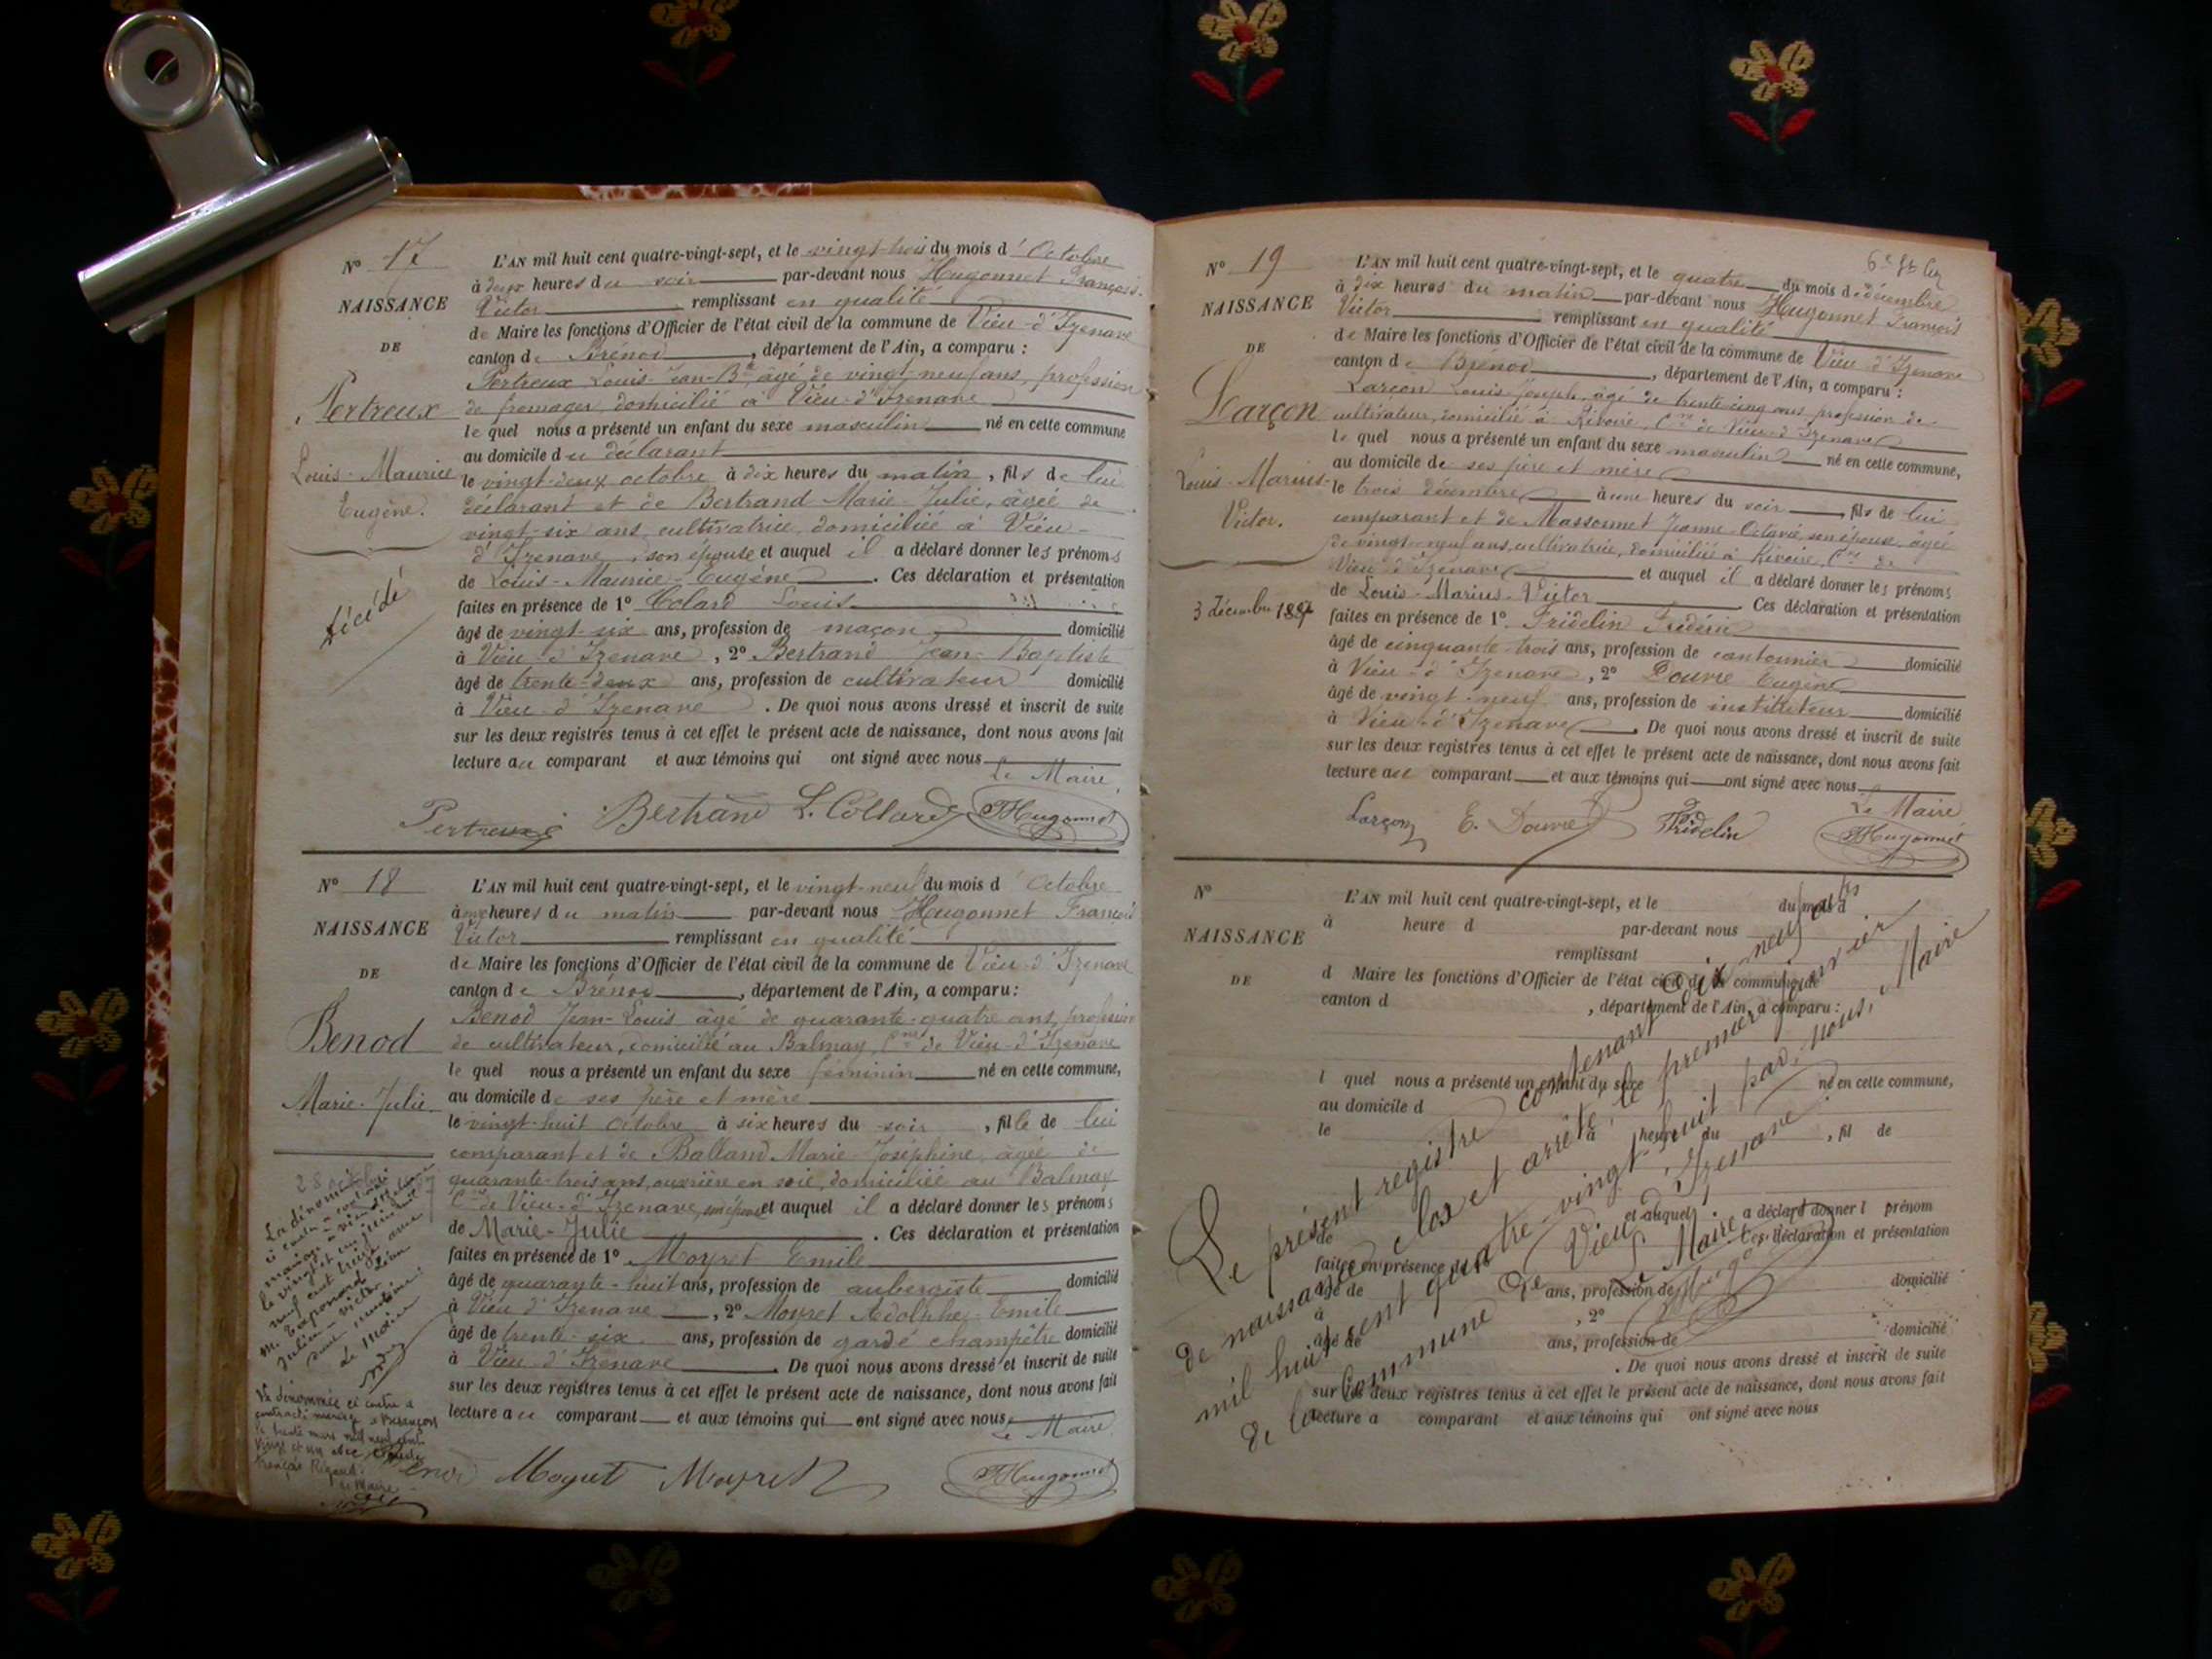 N° 17
NAISSANCE
DE
Pertreux
Louis-Maurice
Eugène.
décédé
L'AN mil huit cent quatre-vingt-sept, et le vingt-trois du mois d'Octobre
à deux heures du soir par-devant nous Hugonnet François-
Victor remplissant en qualité
de Maire les fonctions d'Officier de l'état civil de la commune de Vieu-d'Izenave
canton de Brénod, département de l'Ain, a comparu :
Pertreux Louis-Jean-Bte, âgé de vingt-neuf ans, profession
de fromager, domicilié à Vieu-d'Izenave
le quel nous a présenté un enfant du sexe masculin né en cette commune
au domicile du déclarant
le vingt-deux octobre à dix heures du matin, fils de lui
déclarant et de Bertrand Marie-Julie, âgée de
vingt-six ans, cultivatrice, domiciliée à Vieu-
d'Izenave, son épouse et auquel il a déclaré donner les prénoms
de Louis-Maurice-Eugène. Ces déclaration et présentation
faites en présence de 1° Colard Louis
âgé de vingt-six ans, profession de maçon domicilié
à Vieu-d'Izenave, 2° Bertrand Jean-Baptiste
âgé de trente-deux ans, profession de cultivateur domicilié
à Vieu-d'Izenave. De quoi nous avons dressé et inscrit de suite
sur les deux registres tenus à cet effet le présent acte de naissance, dont nous avons fait
lecture au comparant et aux témoins qui ont signé avec nous
Le Maire,
Pertreux Bertrand L. Collard Hugonnet
N° 18
NAISSANCE
DE
Benod
Marie-Julie.
L'AN mil huit cent quatre-vingt-sept, et le vingt-neuf du mois d'Octobre
à onze heures du matin par-devant nous Hugonnet François
Victor remplissant en qualité
de Maire les fonctions d'Officier de l'état civil de la commune de Vieu-d'Izenave
canton de Brénod, département de l'Ain, a comparu :
Benod Jean-Louis âgé de quarante-quatre ans, profession
de cultivateur, domicilié au Balmay, Cne de Vieu-d'Izenave
le quel nous a présenté un enfant du sexe féminin né en cette commune,
au domicile de ses père et mère
le vingt-huit Octobre à six heures du soir, fille de lui
comparant et de Balland Marie-Joséphine, âgée de
quarante-trois ans, ouvrière en soie, domiciliée au Balmay
Cne de Vieu-d'Izenave, son épouse et auquel il a déclaré donner les prénoms
de Marie-Julie. Ces déclaration et présentation
faites en présence de 1° Moyret Emile
âgé de quarante-huit ans, profession de aubergiste domicilié
à Vieu d'Izenave, 2° Moyret Adolphe-Emile
âgé de trente-six ans, profession de garde champêtre domicilié
à Vieu-d'Izenave. De quoi nous avons dressé et inscrit de suite
sur les deux registres tenus à cet effet le présent acte de naissance, dont nous avons fait
lecture au comparant et aux témoins qui ont signé avec nous.
Le Maire,
Benod Moyret Moyret Hugonnet
La dénommée
ci contre a contracté
mariage à
le vingt et un
neuf cent treize avec
M.
Julien-Victor
Le Maire
La dénommée ci contre a
contracté mariage à Besançon
le trente mars mil neuf cent
vingt et un avec
François Rigaud.
Le Maire
N° 19
NAISSANCE
DE
Larçon
Louis-Marius-
Victor.
3 décembre 1887
L'AN mil huit cent quatre-vingt-sept, et le quatre du mois de décembre
à dix heures du matin par-devant nous Hugonnet François
Victor remplissant en qualité
de Maire les fonctions d'Officier de l'état civil de la commune de Vieu-d'Izenave
canton de Brénod, département de l'Ain, a comparu :
Larçon Louis-Joseph, âgé de trente-cinq ans, profession de
cultivateur, domicilié à Rivoire, Cne de Vieu-d'Izenave
le quel nous a présenté un enfant du sexe masculin né en cette commune,
au domicile de ses père et mère
le trois décembre à une heures du soir, fils de lui
comparant et de Massonnet Jeanne-Octavie, son épouse, âgée
de vingt-neuf ans, cultivatrice, domiciliée à Rivoire, Cne de
Vieu-d'Izenave et auquel il a déclaré donner les prénoms
de Louis-Marius-Victor. Ces déclaration et présentation
faites en présence de 1° Fridelin Frédéric
âgé de cinquante-trois ans, profession de cantonnier domicilié
à Vieu-d'Izenave, 2° Douvre Eugène
âgé de vingt-neuf ans, profession de instituteur domicilié
à Vieu-d'Izenave. De quoi nous avons dressé et inscrit de suite
sur les deux registres tenus à cet effet le présent acte de naissance, dont nous avons fait
lecture au comparant et aux témoins qui ont signé avec nous
Le Maire
Larçon E. Douvre Fridelin Hugonnet
N°
NAISSANCE
DE
L'AN mil huit cent quatre-vingt-sept, et le du mois d
à heure d par-devant nous
remplissant
d Maire les fonctions d'Officier de l'état civil de la commune de
canton d , département de l'Ain, a comparu :
l quel nous a présenté un enfant du sexe né en cette commune,
au domicile d
le à heure du , fil de
et auquel a déclaré donner l prénom
de . Ces déclaration et présentation
faites en présence de 1°
âgé de ans, profession de domicilié
à , 2°
âgé de ans, profession de domicilié
à . De quoi nous avons dressé et inscrit de suite
sur les deux registres tenus à cet effet le présent acte de naissance, dont nous avons fait
lecture a comparant et aux témoins qui ont signé avec nous
Le présent registre contenant dix neuf actes
de naissance clos et arrêté le premier janvier
mil huit cent quatre-vingt-huit par nous, Maire
de la Commune de Vieu d'Izenave.
Le Maire
Hugonnet